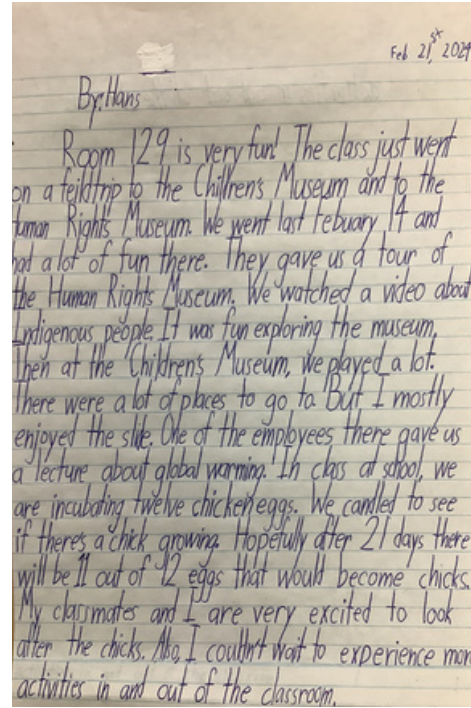 Feb 21st, 2024
By: Hans
Room 129 is very fun! The class just went
on a feildtrip to the Chilren's Museum and to the
Human Rights Museum. We went last febuary 14 and
had a lot of fun there. They gave us a tour of
the Human Rights Museum. We watched a video about
Indigenous people. It was fun exploring the museum.
Then at the Children's Museum, we played a lot.
There were a lot of places to go to. But I mostly
enjoyed the slide. One of the employees there gave us
a lecture about global warming. In class at school, we
are incubating twelve chicken eggs. We candled to see
if there's a chick growing. Hopefully after 21 days there
will be 11 out of 12 eggs that would become chicks.
My classmates and I are very excited to look
after the chicks. Also, I couldn't wait to experience more
activities in and out of the classroom.